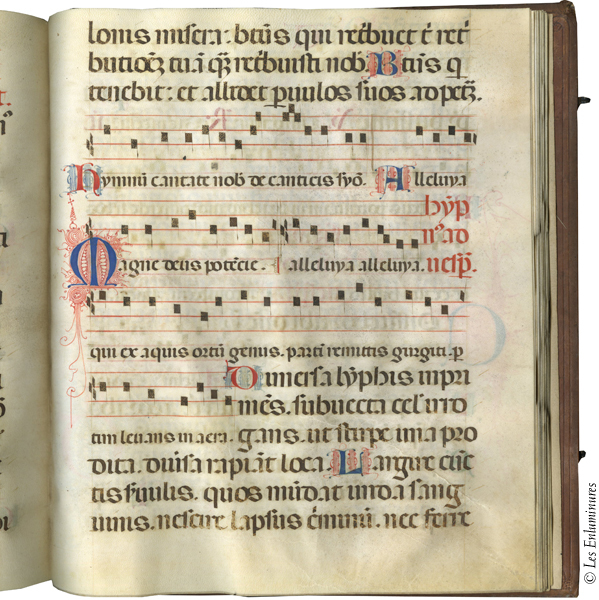 lonis misera: btūs qui retribuet t ret
butionē tuā qȝ retribuisti nob. Btūs q
tenebit: et allidet puulos suos ad petȝ.
Hymnū cantate nob de canticis syō. Alleluya
hyp
nꝰ ad
Magne deus potētie. alleluya alleluya. uesp.
qui ex aquis ortū genus. partī remittis gurgiti. p
Dimersa lymphis inpri
mēs. subuecta celis irro
tim leuans in aera. gans. ut stirpe una pro
dita. diuersa rapiāt loca. Largire cūc
tis seruulis. quos mūdat unda sang
uinis. nescire lapsus criminū. nec ferre
© Les Enluminures